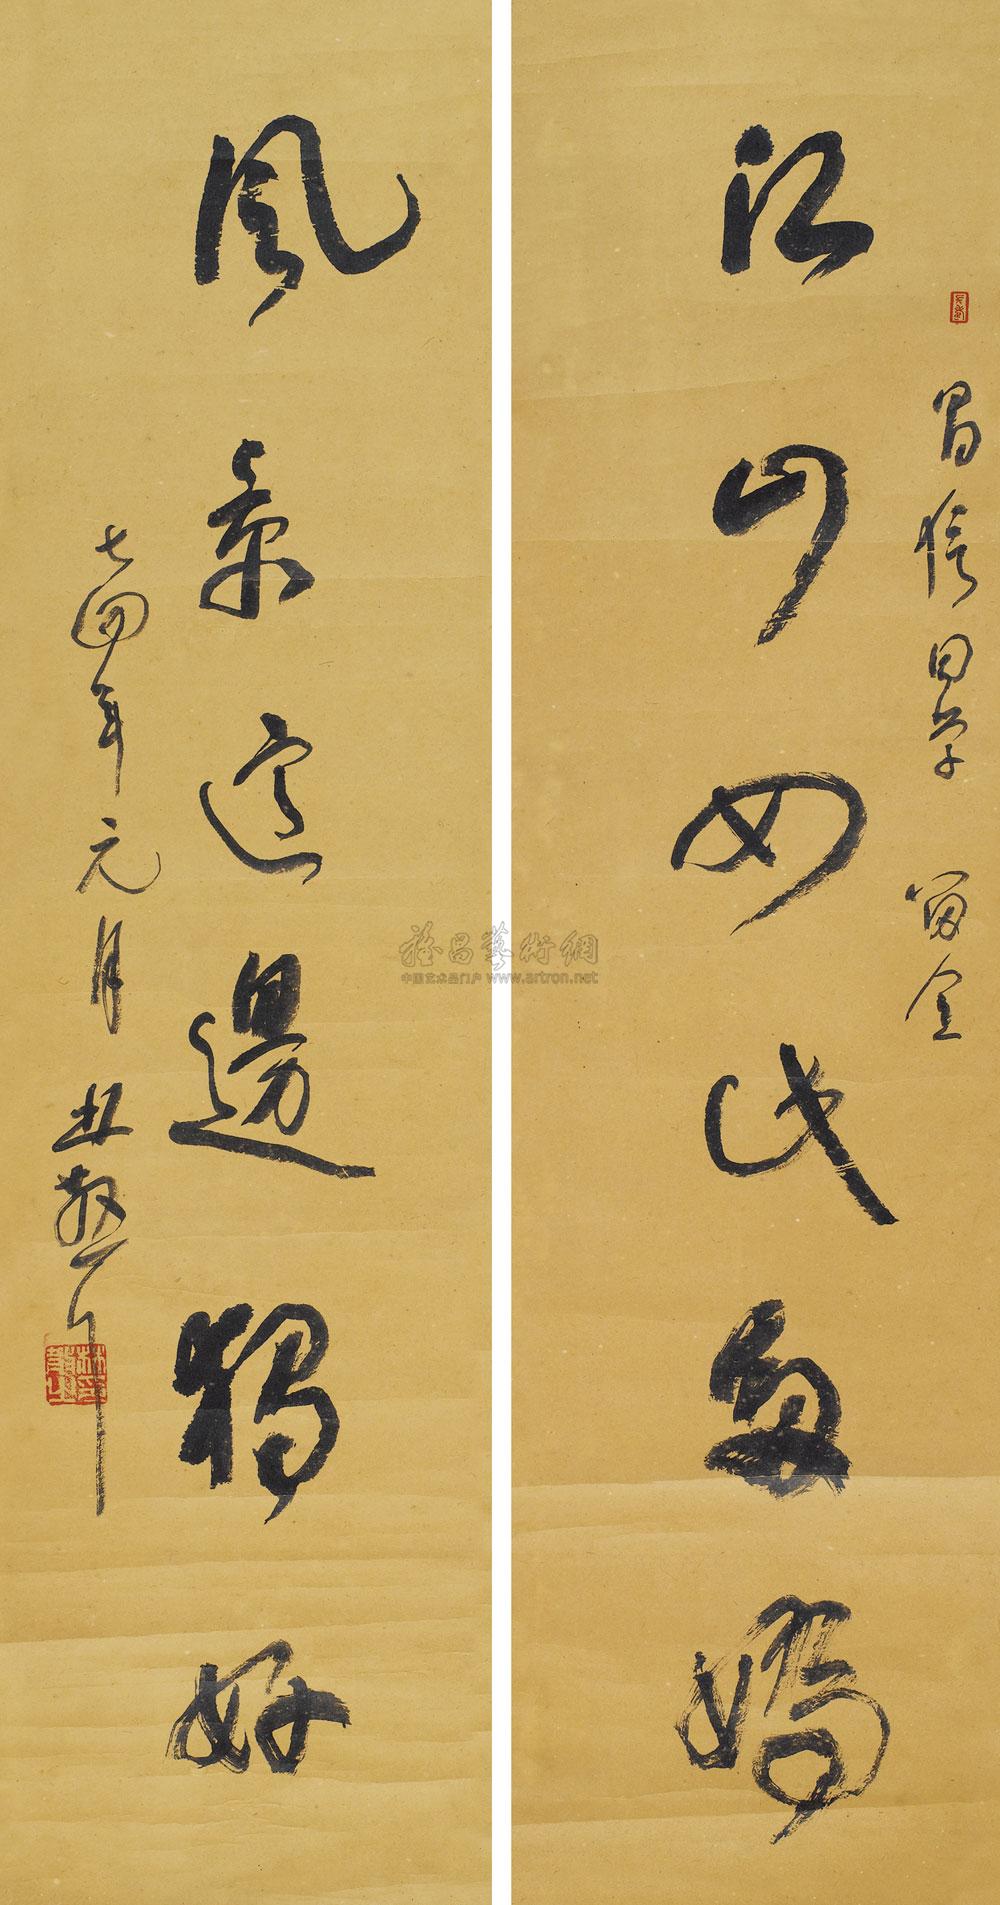 江山如此多嬌
昌信同学 留念
風景這邊獨好
七四年元月 林散耳
雅昌藝術網
中国艺术品门户 www.artron.net